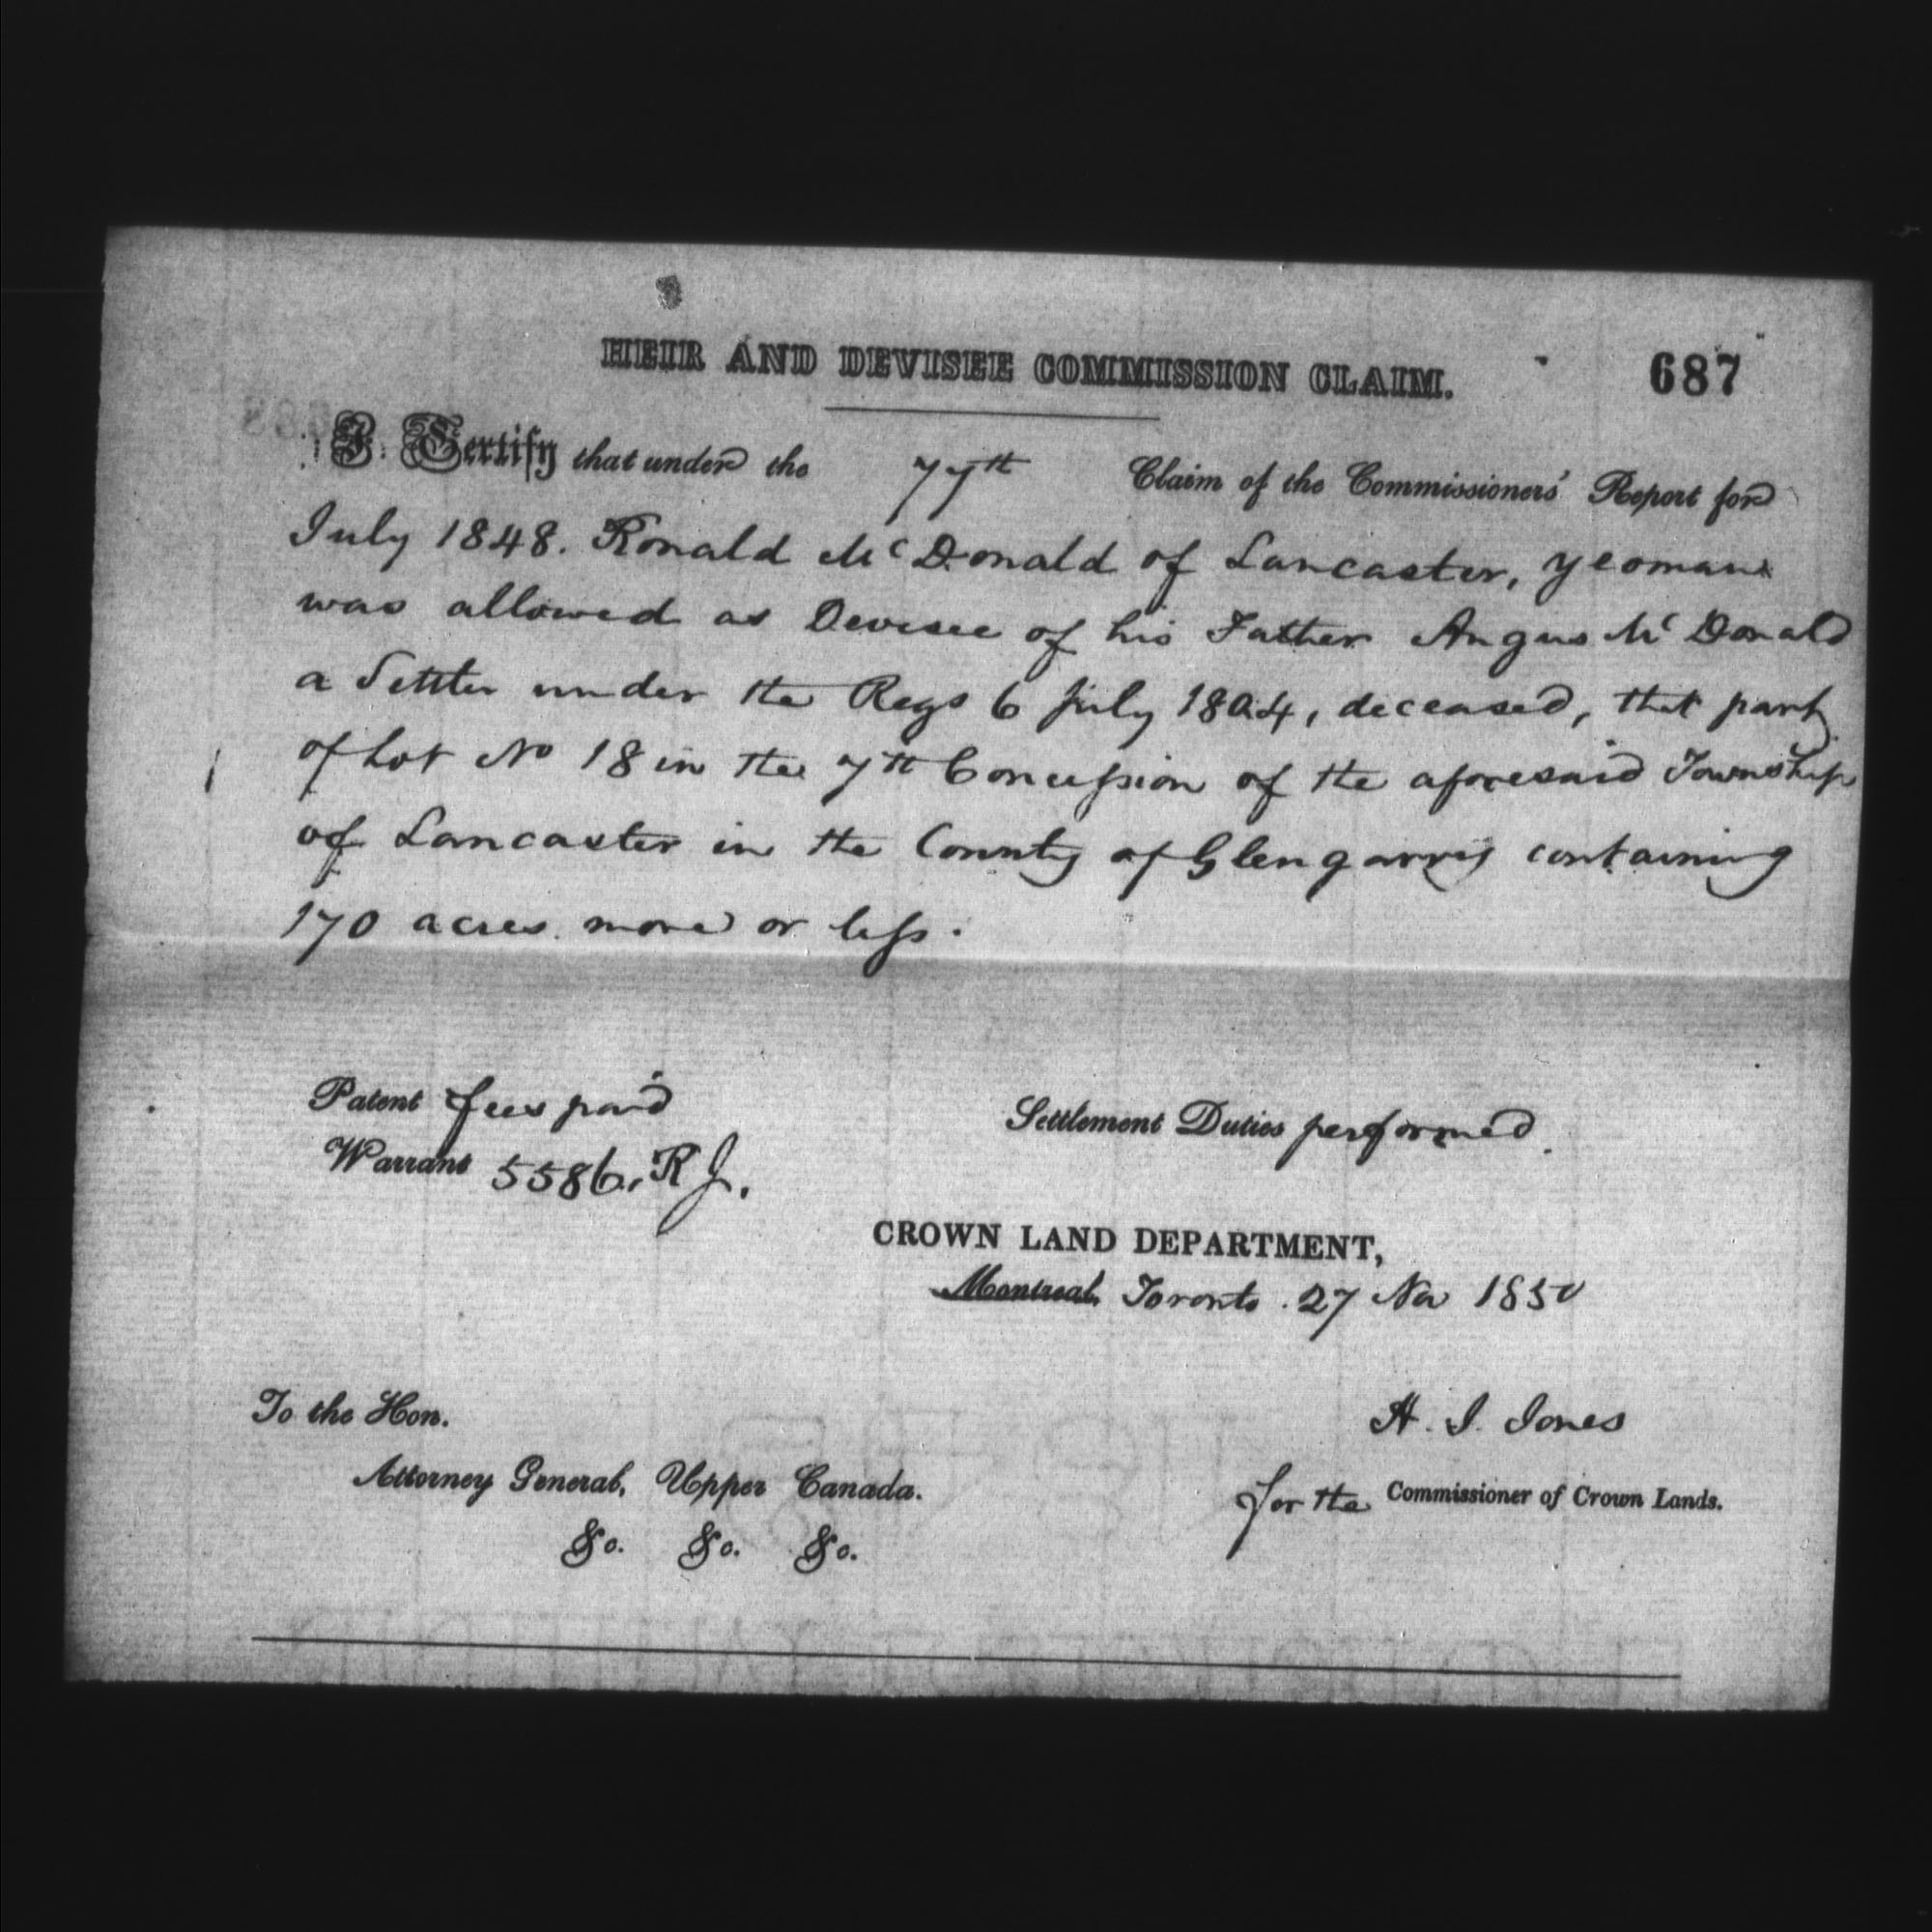 HEIR AND DEVISEE COMMISSION CLAIM. 687
I Certify that under the 77th Claim of the Commissioners' Report for
July 1848. Ronald McDonald of Lancaster, yeoman
was allowed as Devisee of his Father Angus McDonald
a Settler under the Regs 6 July 1804, deceased, that part
of Lot No 18 in the 7th Concession of the aforesaid Township
of Lancaster in the County of Glengarry containing
170 acres more or less.
Patent fees paid
Settlement Duties performed.
Warrant 5586, R J.
CROWN LAND DEPARTMENT,
Montreal, Toronto. 27 Nov 1850
To the Hon.
H. J. Jones
Attorney General, Upper Canada.
for the Commissioner of Crown Lands.
&c. &c. &c.